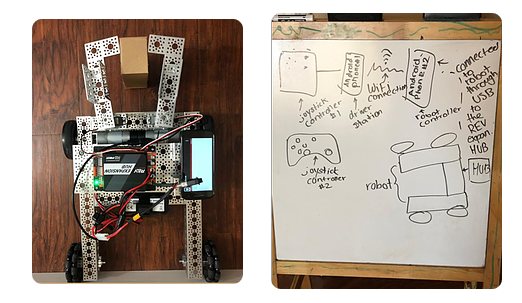 REV
EXPANSION
HUB
joystick
controller
#1
Android
phone #1
driver
station
WiFi
connection
Android
phone #2
robot
controller
connected
to
robot
through
USB
to
the
REV
expan.
HUB
joystick
controller
#2
robot
HUB